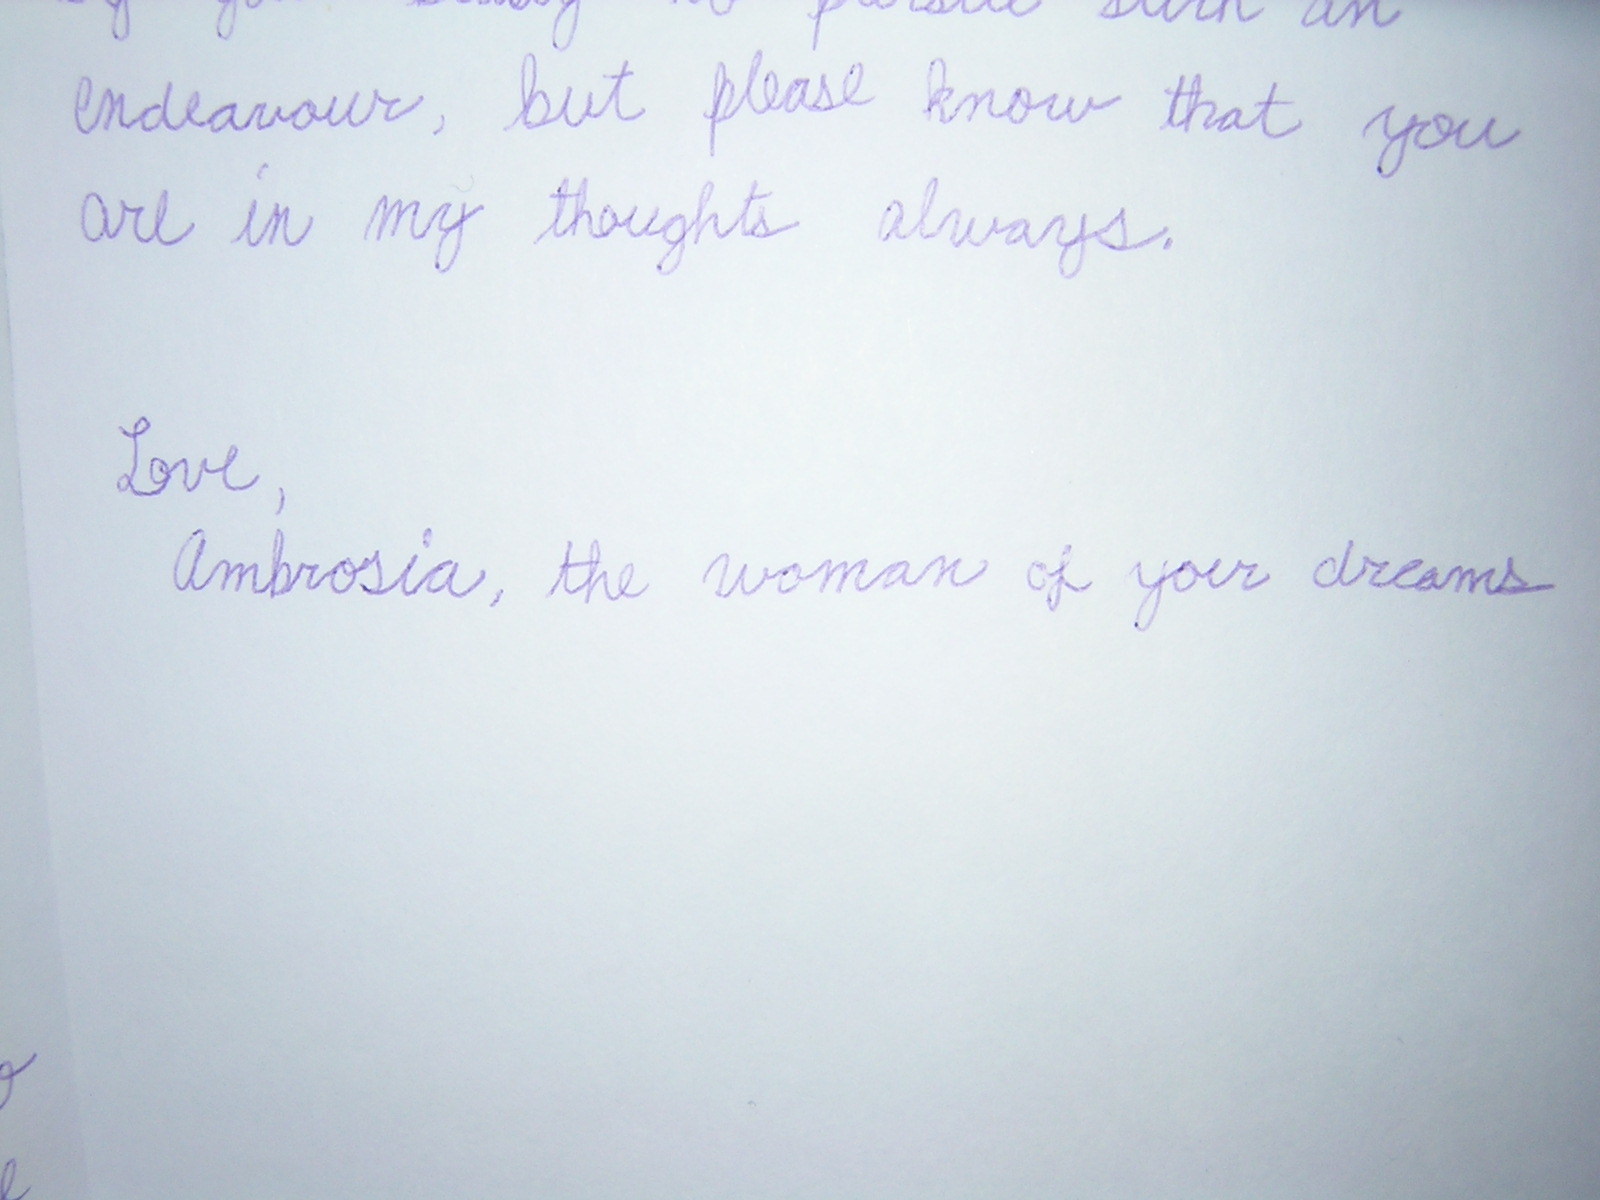 to pursue such an
endeavour, but please know that you
are in my thoughts always.
Love,
Ambrosia, the woman of your dreams